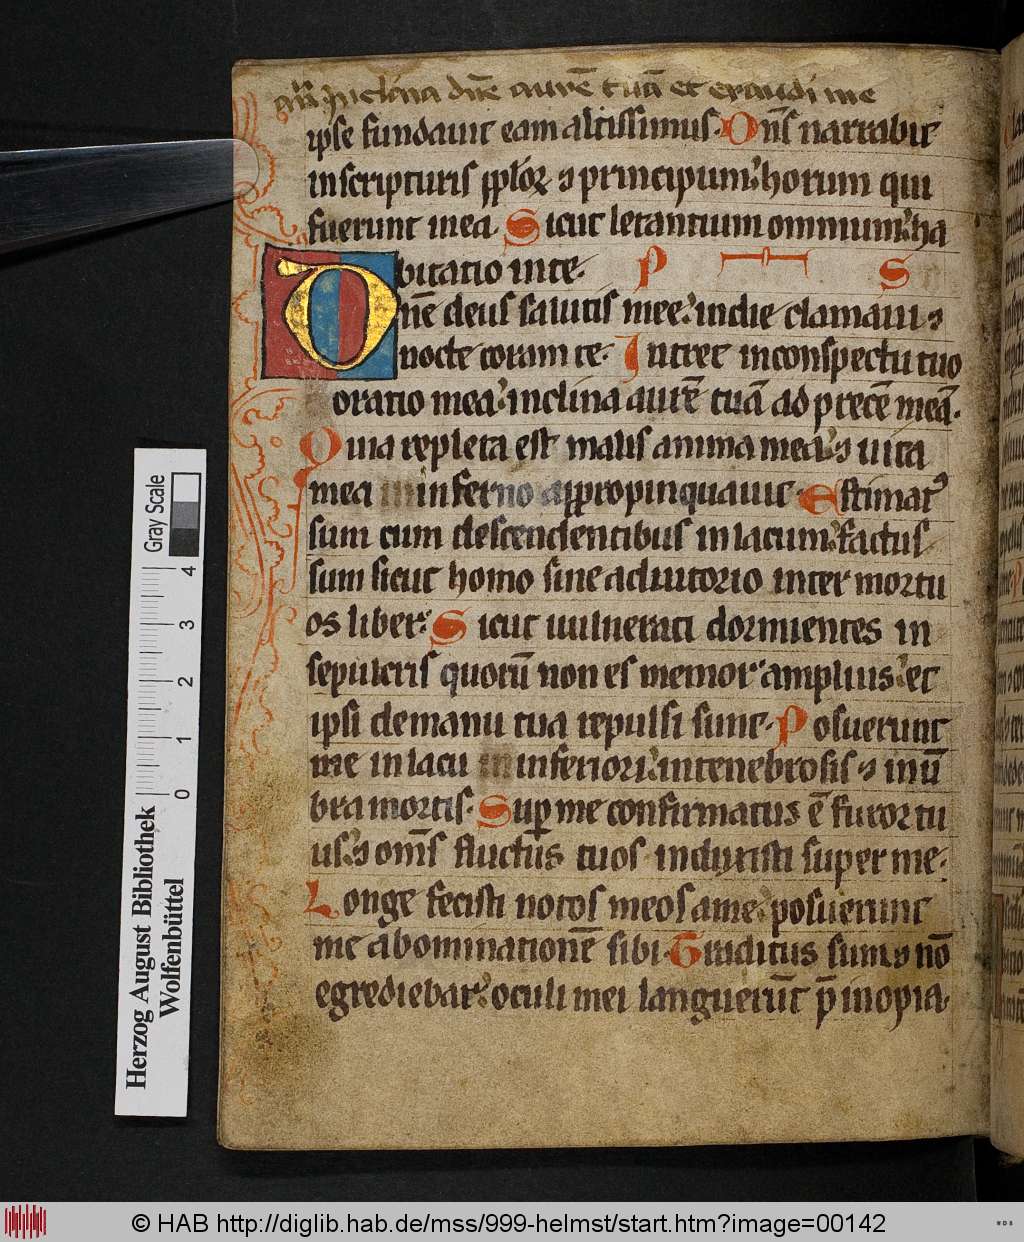 an̄ Inclina dn̄e aurē tuā et exaudi me
ipse fundauit eam altissimus. Dn̄s narrabit
in scripturis ppl'oꝝ ⁊ principum: horum qui
fuerunt in ea. Sicut letantium omnium: ha
bitatio in te. P S
Dn̄e deus salutis mee: in die clamaui ⁊
nocte coram te. Intret in conspectu tuo
oratio mea: inclina aurē tuā ad precē meā.
Quia repleta est malis anima mea: ⁊ uita
mea inferno appropinquauit. Estimatꝰ
sum cum descendentibus in lacum: factus
sum sicut homo sine adiutorio inter mortu
os liber: Sicut uulnerati dormientes in
sepulcris quorū non es memor amplius: et
ipsi de manu tua repulsi sunt. Posuerunt
me in lacu inferiori: in tenebrosis ⁊ in ū
bra mortis. Suꝑ me confirmatus ē furor tu
us: ⁊ om̄s fluctus tuos induxisti super me.
Longe fecisti notos meos a me: posuerunt
me abominationē sibi. Traditus sum ⁊ nō
egrediebar: oculi mei languerūt p̄ inopia.
Gray Scale
0 1 2 3 4
Herzog August Bibliothek
Wolfenbüttel
© HAB http://diglib.hab.de/mss/999-helmst/start.htm?image=00142